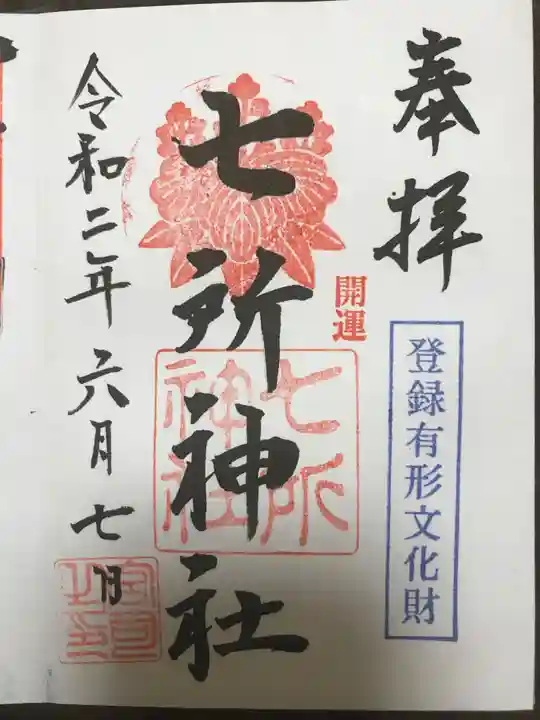 奉拝
登録有形文化財
開運
七所神社
七所
神社
令和二年六月七日